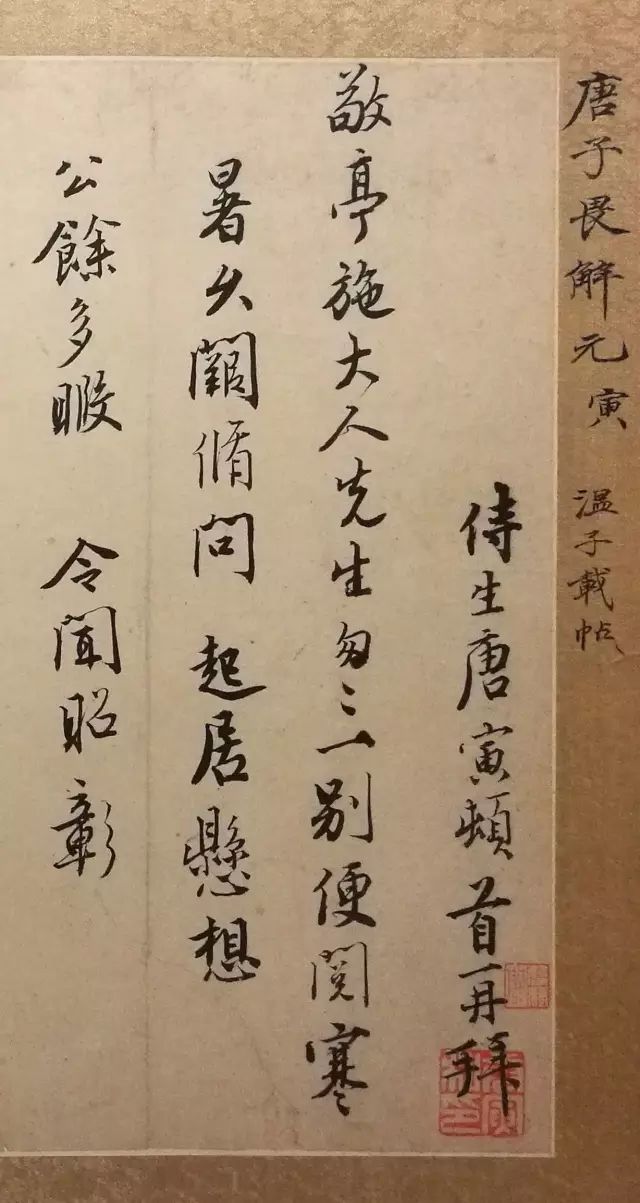 唐子畏解元寅 温子載帖
侍生唐寅頓首再拜
敬亭施大人先生匆〻一別便閱寒
暑久闊脩問 起居懸想
公餘多暇 令聞昭彰